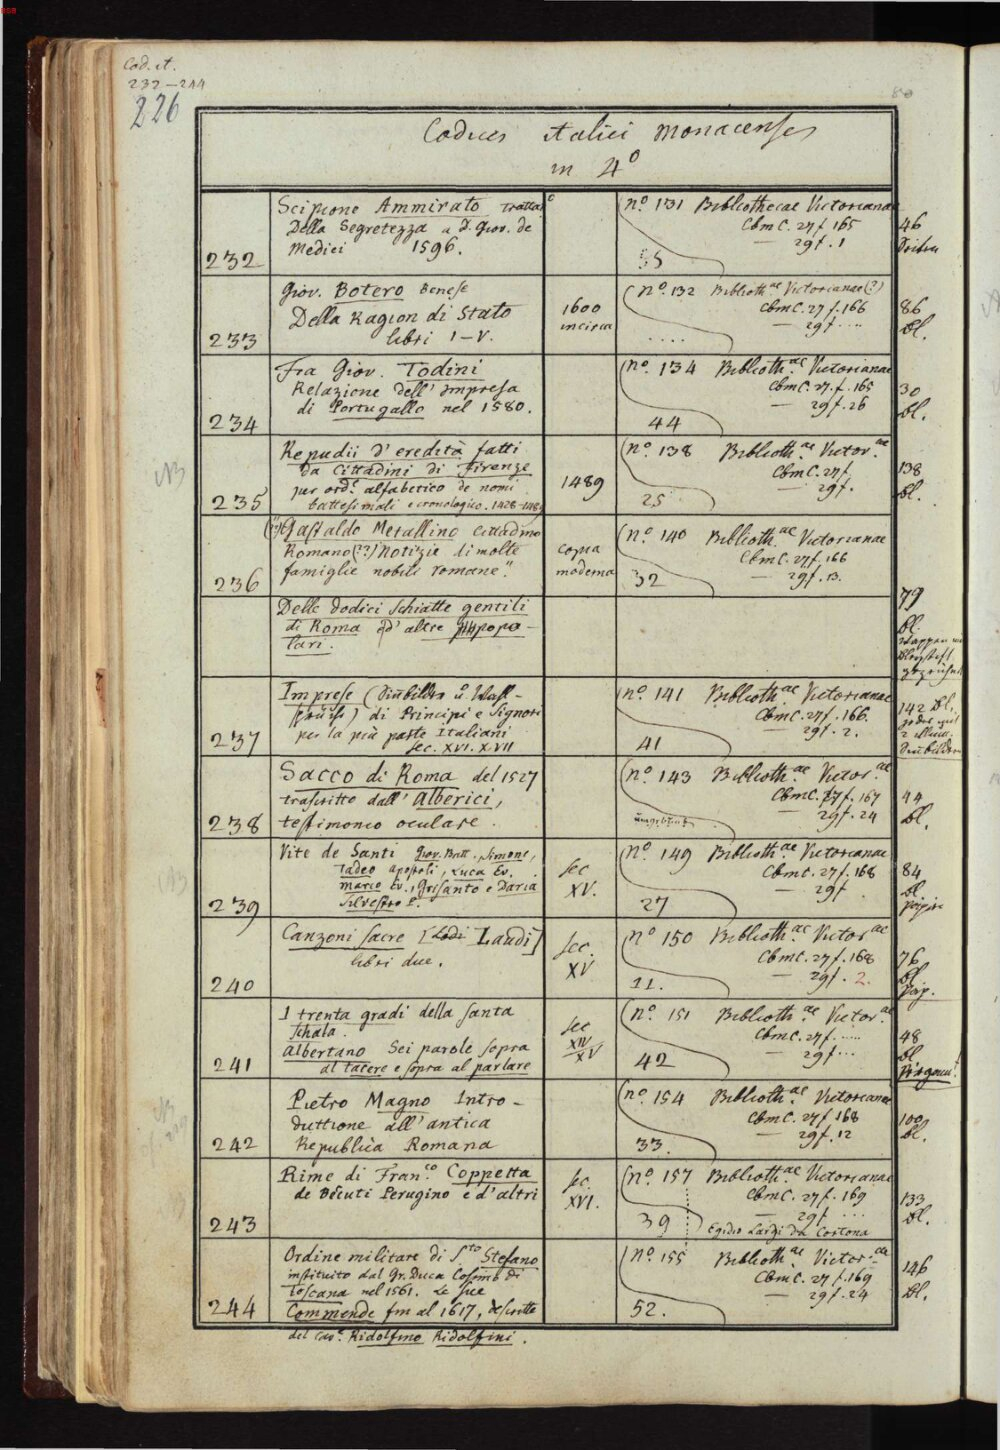 Cod. it.
232–244
226
80
Codices italici monacenses
in 4º
232
Scipione Ammirato Trattatº
Della Segretezza a D. Giov. de
Medici 1596.
nº. 131 Bibliothecae Victorianae
CbmC. 27f 165
— 29f. 1
35
46
233
Giov. Botero Benese
Della Ragion di Stato
libri I–V.
1600
incirca
nº. 132 Biblioth.ae Victorianae(?)
CbmC 27 f. 166
— 29f ....
....
86
Bl.
234
Fra Giov. Todini
Relazione dell' Impresa
di Portugallo nel 1580.
nº. 134 Biblioth.ae Victorianae
CbmC. 27. f. 165
— 29f. 26
44
30
Bl.
NB
235
Repudii d' eredità fatti
da Cittadini di Firenze
per ord.e alfabetico de nomi
battesimali e cronologico. 1428–148
1489
nº. 138 Biblioth.ae Victor.ae
CbmC. 27f.
— 29f.
25
138
Bl.
236
(?)"Gastaldo Metallino cittadino
Romano(??) Notizie di molte
famiglie nobili romane".
copia
moderna
nº. 140 Biblioth.ae Victorianae
CbmC. 27f. 166
— 29f. 13.
32
Delle dodici Schiatte gentili
di Roma ed' altre popo–
lari.
79
Bl.
Wappen mit
Bleystift
237
Imprese (Sinbilder u. Wahl–
sprüche) di Principi e Signori
per la più parte Italiani
sec. XVI. XVII
nº. 141 Biblioth.ae Victorianae
CbmC. 27f. 166.
— 29f. 2.
41
142 Bl.
jedes mit
Sinbildern
238
Sacco di Roma del 1527
trascritto dall' Alberici,
testimonio oculare.
nº. 143 Biblioth.ae Victor.ae
CbmC. 27f. 167
— 29f. 24
44
Bl.
(NB)
239
Vite de Santi Giov. Batt. Simone,
Tadeo apostoli, Luca Ev.
Marco Ev., Grisanto e Daria
Silvestro P.
sec
XV.
nº. 149 Biblioth.ae Victorianae
CbmC. 27f. 168
— 29f
27
84
Bl.
papier
240
Canzoni sacre [Lodi Laudi]
libri due.
sec.
XV
nº 150 Biblioth.ae Victor.ae
CbmC. 27f. 168
— 29f. 2.
11.
76
Bl.
pap.
241
I trenta gradi della Santa
Schala.
Albertano Sei parole sopra
al tacere e sopra al parlare
sec
XIV
XV
nº. 151 Biblioth.ae Victor.ae
CbmC. 27f. .....
— 29f...
42
48
Bl.
Pergam.!
NB
242
Pietro Magno Intro–
duttione all' antica
Republica Romana
nº. 154 Biblioth.ae Victorianae
CbmC. 27f 168
— 29f. 12
33.
100
Bl.
243
Rime di Fran.co Coppetta
de Becuti Perugino e d' altri
sec.
XVI.
nº. 157 Biblioth.ae Victorianae
CbmC. 27f. 169
— 29f ...
39 Egidio Lardi da Cortona
133
Bl.
244
Ordine militare di S.to Stefano
instituito dal Gr. Duca Cosimo di
Toscana nel 1561. Le sue
Commende fin al 1617, descritte
del Cav.e Ridolfino Ridolfini.
nº. 155 Biblioth.ae Victor.ae
CbmC. 27 f. 169
— 29f. 24
52.
146
Bl.